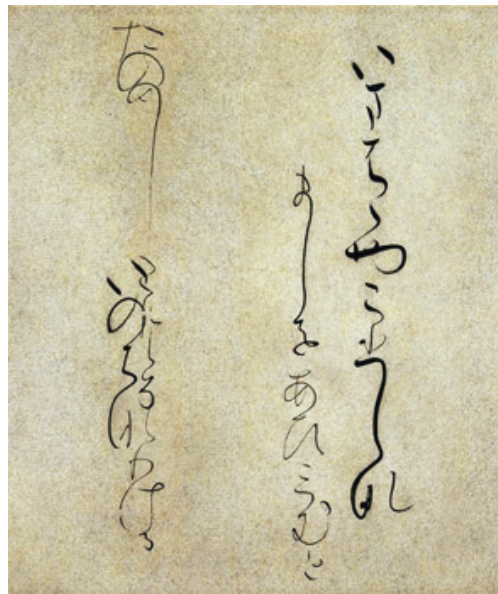 いまはゝやこひしな
ましをあひみむと
たのめし
いのちな
りける